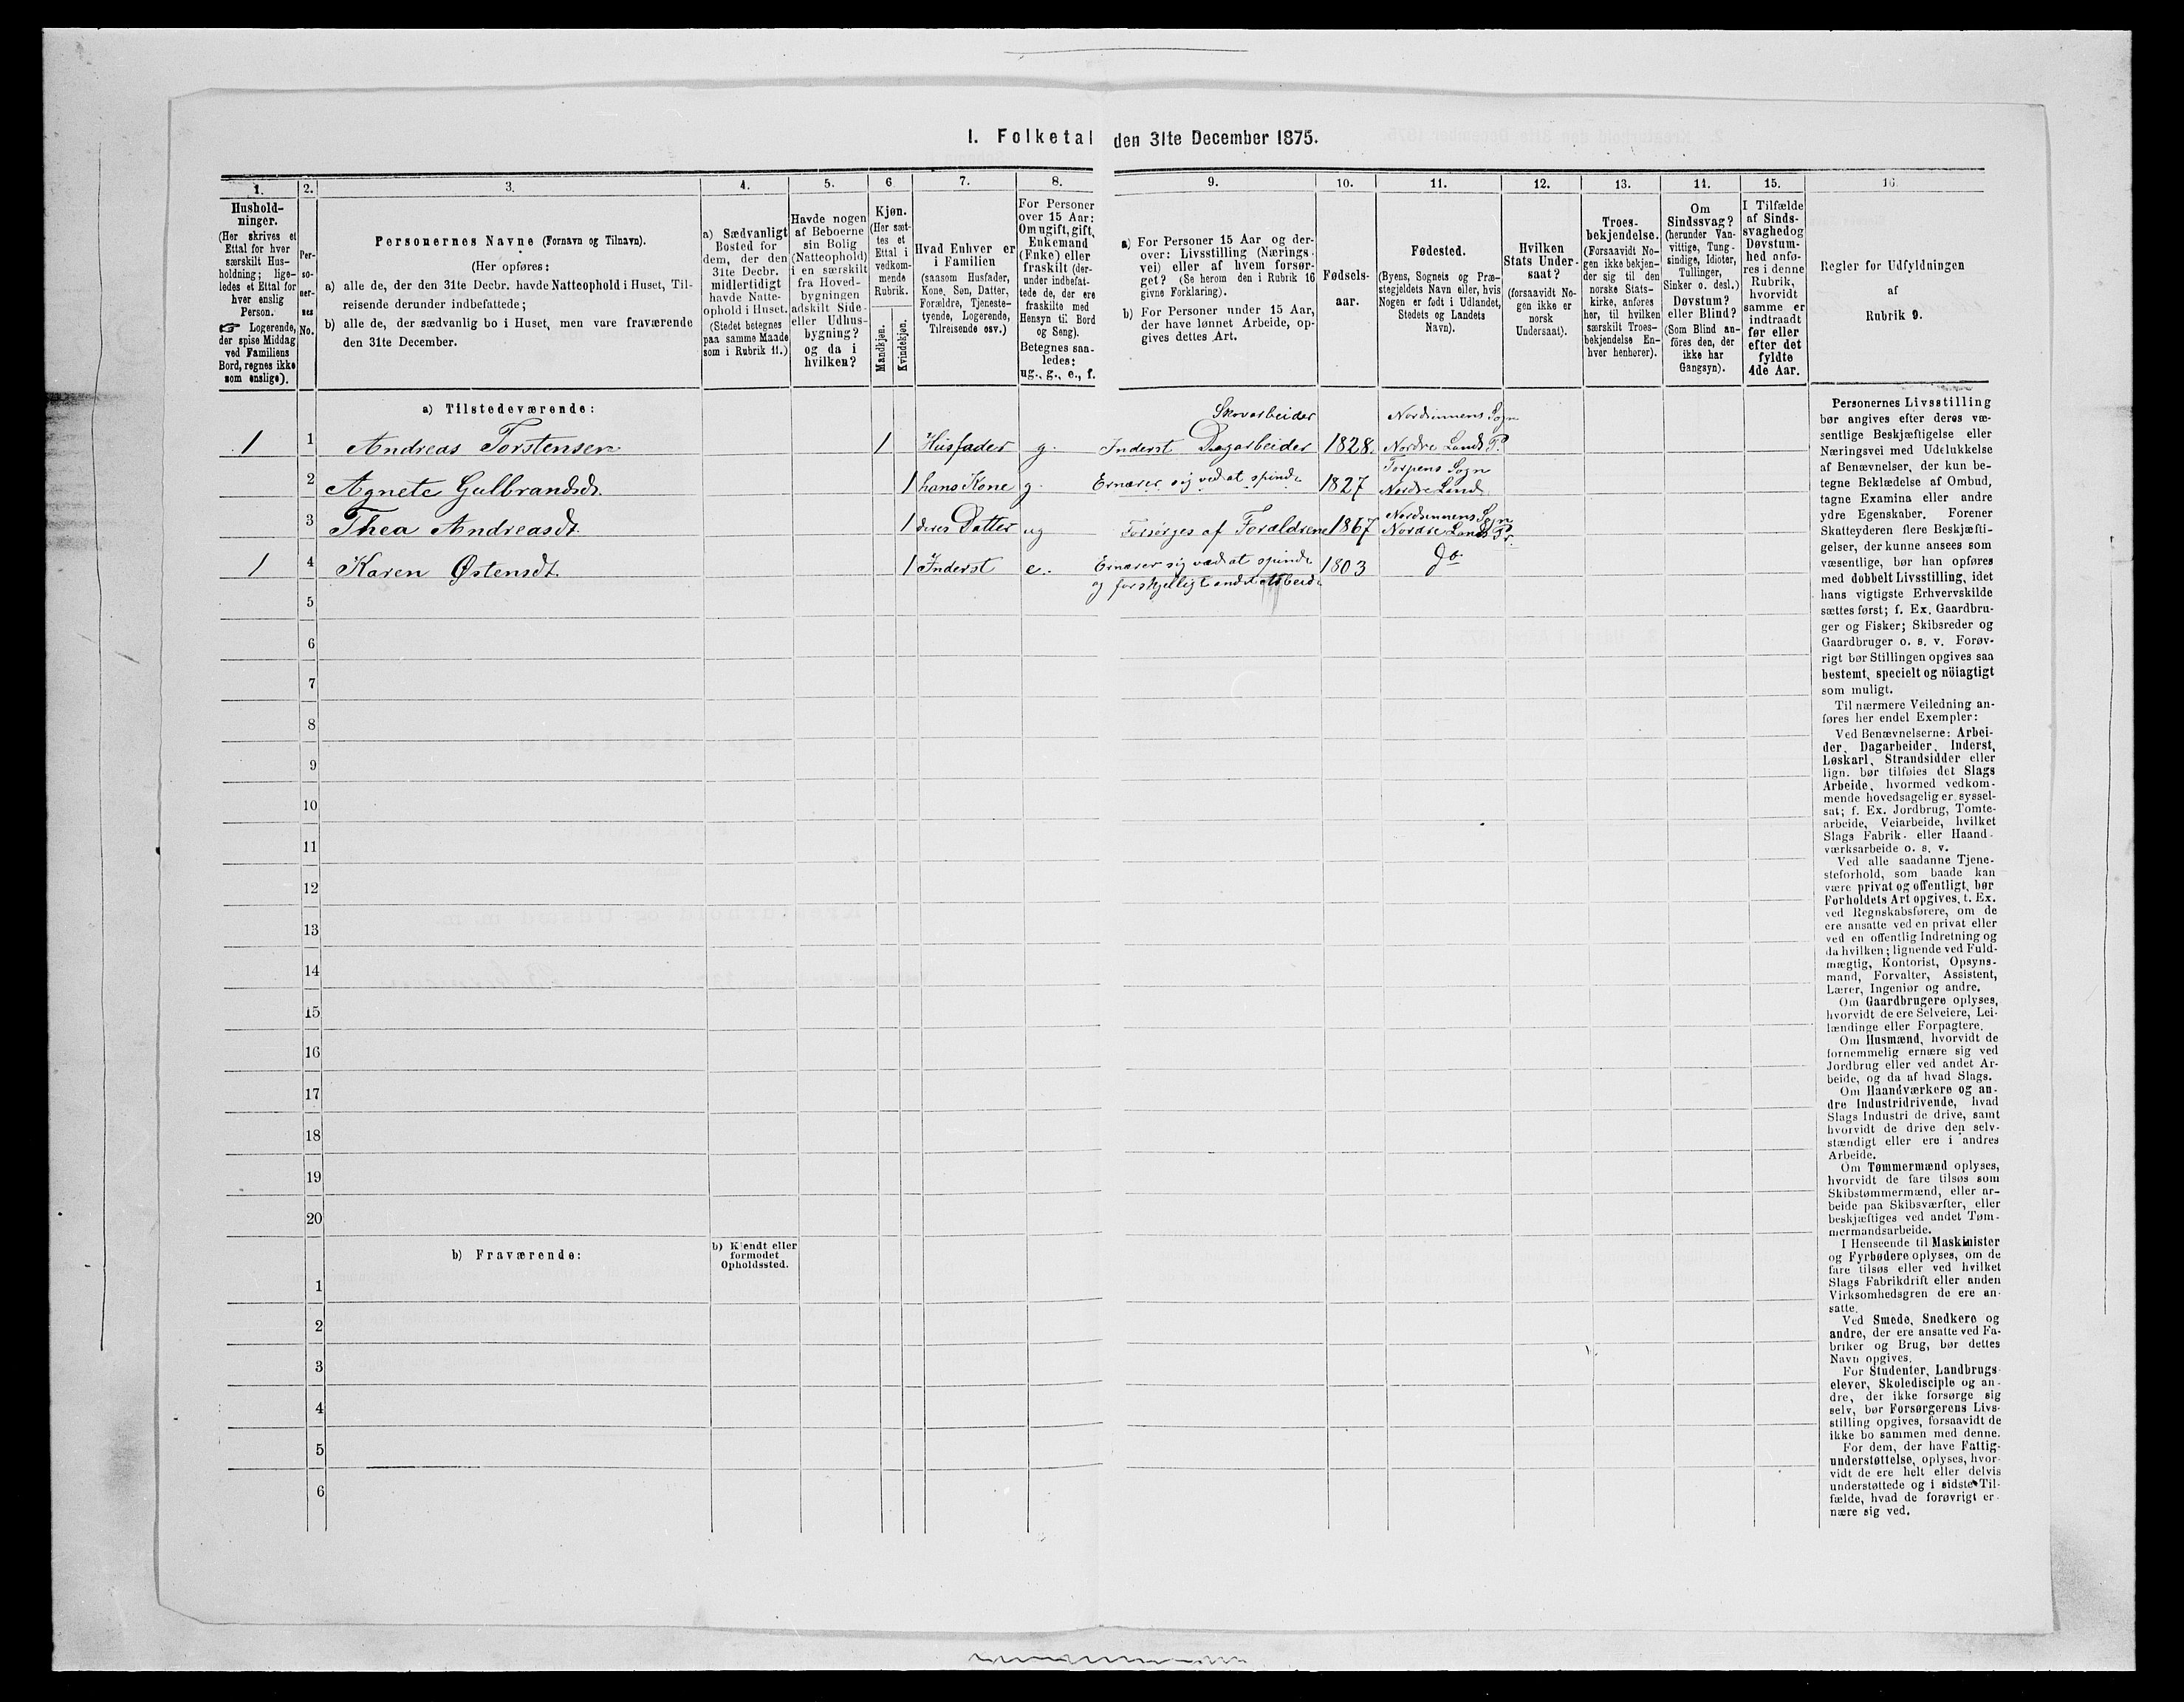 I. Folketal den 31te December 1875.
1. 2. 3. 4. 5. 6 7. 8. 9. 10. 11. 12. 13. 14. 15. 16.
Hushold-
ninger.
(Her skrives et
Ettal for hver
særskilt Hus-
holdning; lige-
ledes et Ettal for
hver enslig
Person.
☞ Logerende,
der spise Middag
ved Familiens
Bord, regnes ikke
som enslige).
Per-
so-
ner-
nes
No.
Personernes Navne (Fornavn og Tilnavn).
(Her opføres:
a) alle de, der den 31te Decbr. havde Natteophold i Huset, Til-
reisende derunder indbefattede;
b) alle de, der sædvanlig bo i Huset, men vare fraværende
den 31te December.
a) Sædvanligt
Bosted for
dem, der den
31te Decbr.
midlertidigt
havde Natte-
ophold i Huset.
(Stedet betegnes
paa samme Maade
som i Rubrik 11.)
Havde nogen
af Beboerne
sin Bolig
(Natteophold)
i en særskilt
fra Hoved-
bygningen
adskilt Side-
eller Udhus-
bygning?
og da i
hvilken?
Kjøn.
(Her sæt-
tes et
Ettal i
vedkom-
mende
Rubrik.
Mandkjøn.
Kvindekjøn.
Hvad Enhver er
i Familien
(saasom Husfader,
Kone, Søn, Datter,
Forældre, Tjeneste-
tyende, Logerende,
Tilreisende osv.)
For Personer
over 15 Aar:
Om ugift, gift,
Enkemand
(Enke) eller
fraskilt (der-
under indbefat-
tede de, der ere
fraskilte med
Hensyn til Bord
og Seng).
Betegnes saa-
ledes:
ug., g., e., f.
a) For Personer 15 Aar og der-
over: Livsstilling (Nærings-
vei) eller af hvem forsør-
get? (Se herom den i Rubrik 16
givne Forklaring).
b) For Personer under 15 Aar,
der have lønnet Arbeide, op-
gives dettes Art.
Fødsels-
aar.
Fødested.
(Byens, Sognets og Præ-
stegjeldets Navn eller, hvis
Nogen er født i Udlandet,
Stedets og Landets
Navn).
Hvilken
Stats Under-
saat?
(forsaavidt No-
gen ikke er
norsk
Undersaat).
Troes-
bekjendelse.
(Forsaavidt No-
gen ikke bekjen-
der sig til den
norske Stats-
kirke, anføres
her, til hvilken
særskilt Troes-
bekjendelse En-
hver henhører).
Om
Sindssvag?
(herunder Van-
vittige, Tung-
sindige, Idioter,
Tullinger,
Sinker o. desl.)
Døvstum?
eller Blind?
(Som Blind an-
föres den, der
ikke har
Gangsyn).
I Tilfælde
af Sinds-
svaghedog
Døvstum-
hed anfø-
res i denne
Rubrik,
hvorvidt
samme er
indtraadt
før eller
efter det
fyldte
4de Aar.
Regler for Udfyldningen
af
Rubrik 9.
a) Tilstedeværende:
Skovarbeider Nordsinnens Sogn
1 1 Andreas Torstensen 1 Husfader g. Inderst Dagarbeider 1828. Nordre Lands P.
Torpens Sogn
2 Agnete Gulbrandsdt. 1 hans Kone g. Ernærer sig ved at spinde 1827 Nordre Land.
Nordsinnens Sogn
3 Thea Andreasdt. 1 deres Datter ug Forsørges af Forældrene 1867 Nordre Lands Pr.
1 4 Karen Østensdt. 1 Inderst e. Ernærer sig ved at spinde 1803 Do
og forskjelligt andet Arbeide
5
6
7
8
9
10
11
12
13
14
15
16
17
18
19
20
b) Fraværende:
b) Kjendt eller
formodet
Opholdssted.
1
2
3
4
5
6
Personernes Livsstilling
bør angives efter deres væ-
sentlige Beskjæftigelse eller
Næringsvei med Udelukkelse
af Benævnelser, der kun be-
tegne Beklædelse af Ombud,
tagne Examina eller andre
ydre Egenskaber. Forener
Skatteyderen flere Beskjæfti-
gelser, der kunne ansees som
væsentlige, bør han opføres
med dobbelt Livsstilling, idet
hans vigtigste Erhvervskilde
sættes først; f. Ex. Gaardbru-
ger og Fisker; Skibsreder og
Gaardbruger o. s. v. Forøv-
rigt bør Stillingen opgives saa
bestemt, specielt og nöiagtigt
som muligt.
Til nærmere Veiledning an-
føres her endel Exempler:
Ved Benævnelserne: Arbei-
der, Dagarbeider, Inderst,
Løskarl, Strandsidder eller
lign. bør tilføies det Slags
Arbeide, hvormed vedkom-
mende hovedsagelig er syssel-
sat; f. Ex. Jordbrug, Tomte-
arbeide, Veiarbeide, hvilket
Slags Fabrik- eller Haand-
værksarbeide o. s. v.
Ved alle saadanne Tjene-
steforhold, som baade kan
være privat og offentligt, bør
Forholdets Art opgives, t. Ex.
ved Regnskabsførere, om de
ere ansatte ved en privat eller
ved en offentlig Indretning og
da hvilken; lignende ved Fuld-
mægtig, Kontorist, Opsyns-
mand, Forvalter, Assistent,
Lærer, Ingeniør og andre.
Om Gaardbrugere oplyses,
hvorvidt de ere Selveiere, Lei-
lændinge eller Forpagtere.
Om Husmænd, hvorvidt de
fornemmelig ernære sig ved
Jordbrug eller ved andet Ar-
beide, og da af hvad Slags.
Om Haandværkere og an-
dre Industridrivende, hvad
Slags Industri de drive, samt
hvorvidt de drive den selv-
stændigt eller ere i andres
Arbeide.
Om Tømmermænd oplyses,
hvorvidt de fare tilsøs som
Skibstømmermænd, eller ar-
beide paa Skibsværfter, eller
beskjæftiges ved andet Tøm-
mermandsarbeide.
I Henseende til Maskinister
og Fyrbødere oplyses, om de
fare tilsøs eller ved hvilket
Slags Fabrikdrift eller anden
Virksomhedsgren de ere an-
satte.
Ved Smede, Snedkere og
andre, der ere ansatte ved Fa-
briker og Brug, bør dettes
Navn opgives.
For Studenter, Landbrugs-
elever, Skoledisciple og an-
dre, der ikke forsørge sig
selv, bør Forsørgerens Livs-
stilling opgives, forsaavidt de
ikke bo sammen med denne.
For dem, der have Fattig-
understøttelse, oplyses, hvor-
vidt de ere helt eller delvis
understøttede og i sidste Til-
fælde, hvad de forøvrigt er-
nære sig ved.